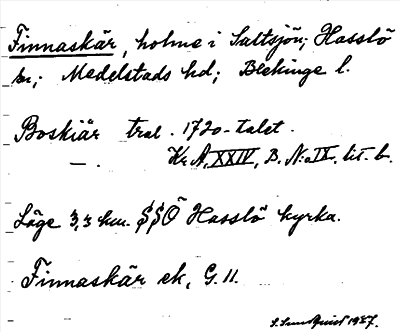 Finnaskär, holme i Saltsjön; Hasslö
sn; Medelstads hd; Blekinge l.
Boskiär tral. 1720-talet.
—. Kr. A, XXIV, B. N:o IX. lit. b.
Läge 3,3 km. SSÖ Hasslö kyrka.
Finnaskär ek, G. 11.
S. Sundquist 1937.